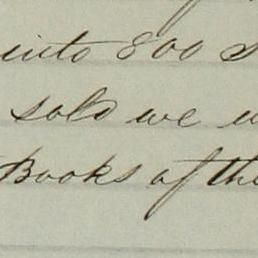 into 800 S
sold we w
Books of the